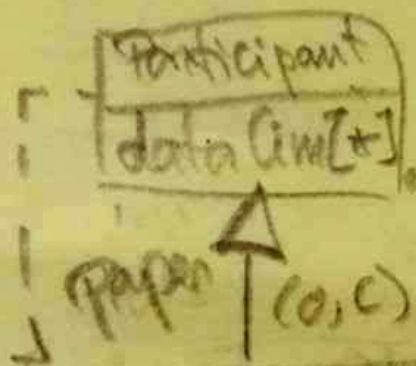 Participant
data Cim[*]
paper (0,C)